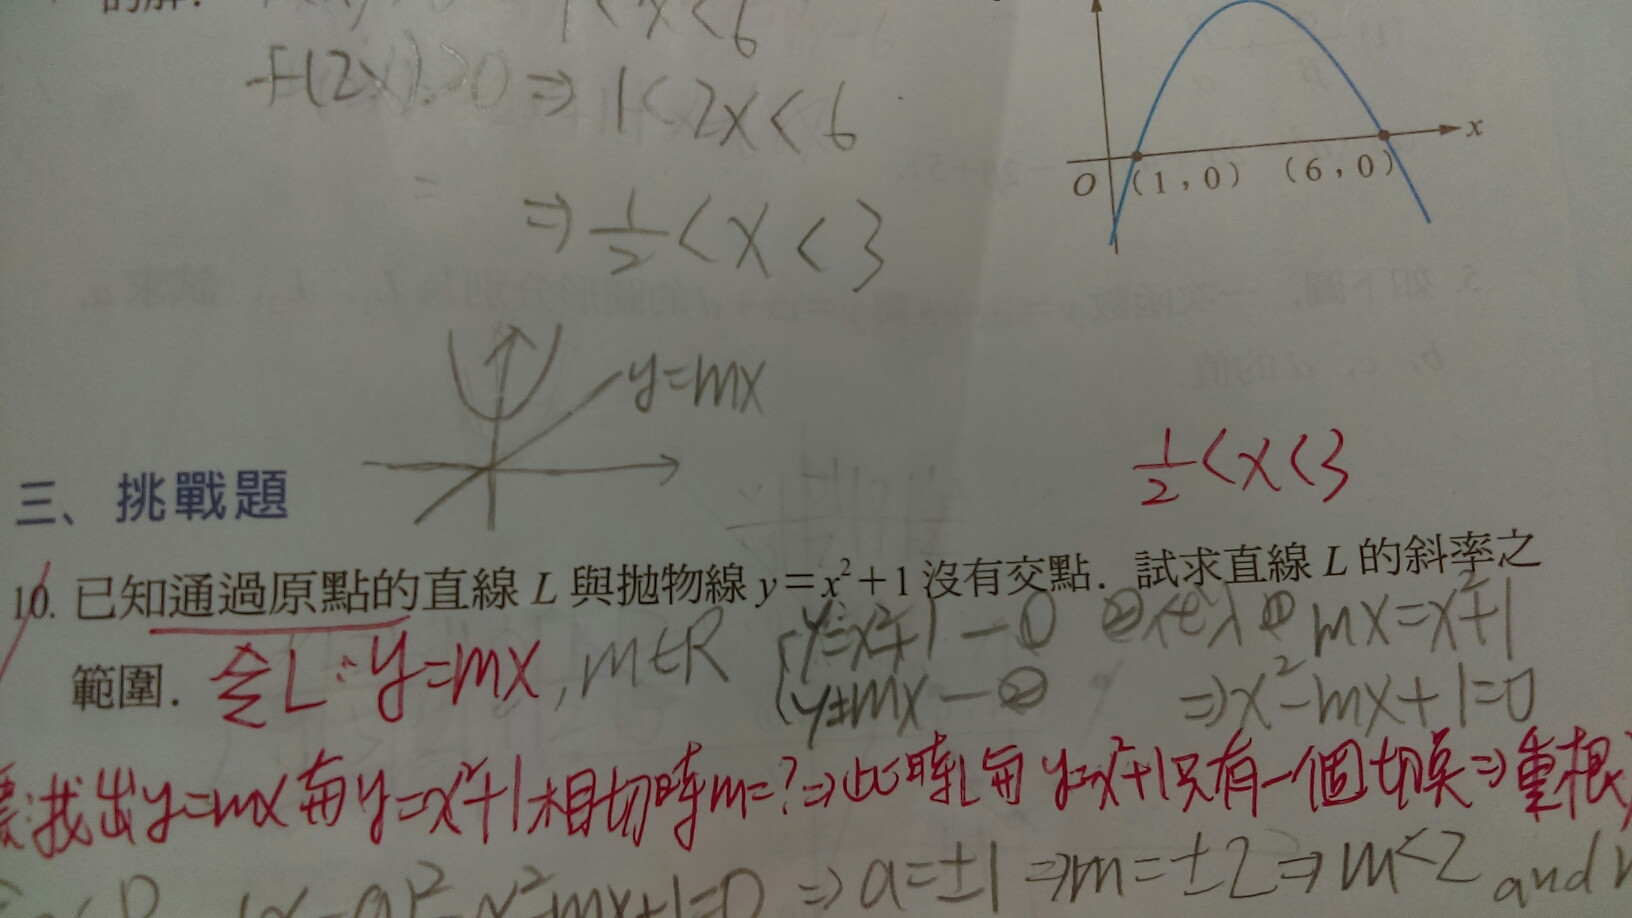 的解.
1<x<6
f(2x)>0 ⇒ 1<2x<6
⇒ 1/2 < x < 3
x
O (1,0) (6,0)
y=mx
1/2<x<3
三、挑戰題
10. 已知通過原點的直線 L 與拋物線 y=x²+1 沒有交點. 試求直線 L 的斜率之
範圍.
令L:y=mx, m∈R
{y=x²+1 —①
y=mx —②
②代入① mx=x²+1
⇒x²-mx+1=0
找出y=mx與y=x²+1相切時m=?⇒此時L與y=x²+1只有一個切點⇒重根
x²-mx+1=0 ⇒a=±1⇒m=±2⇒m<2 and